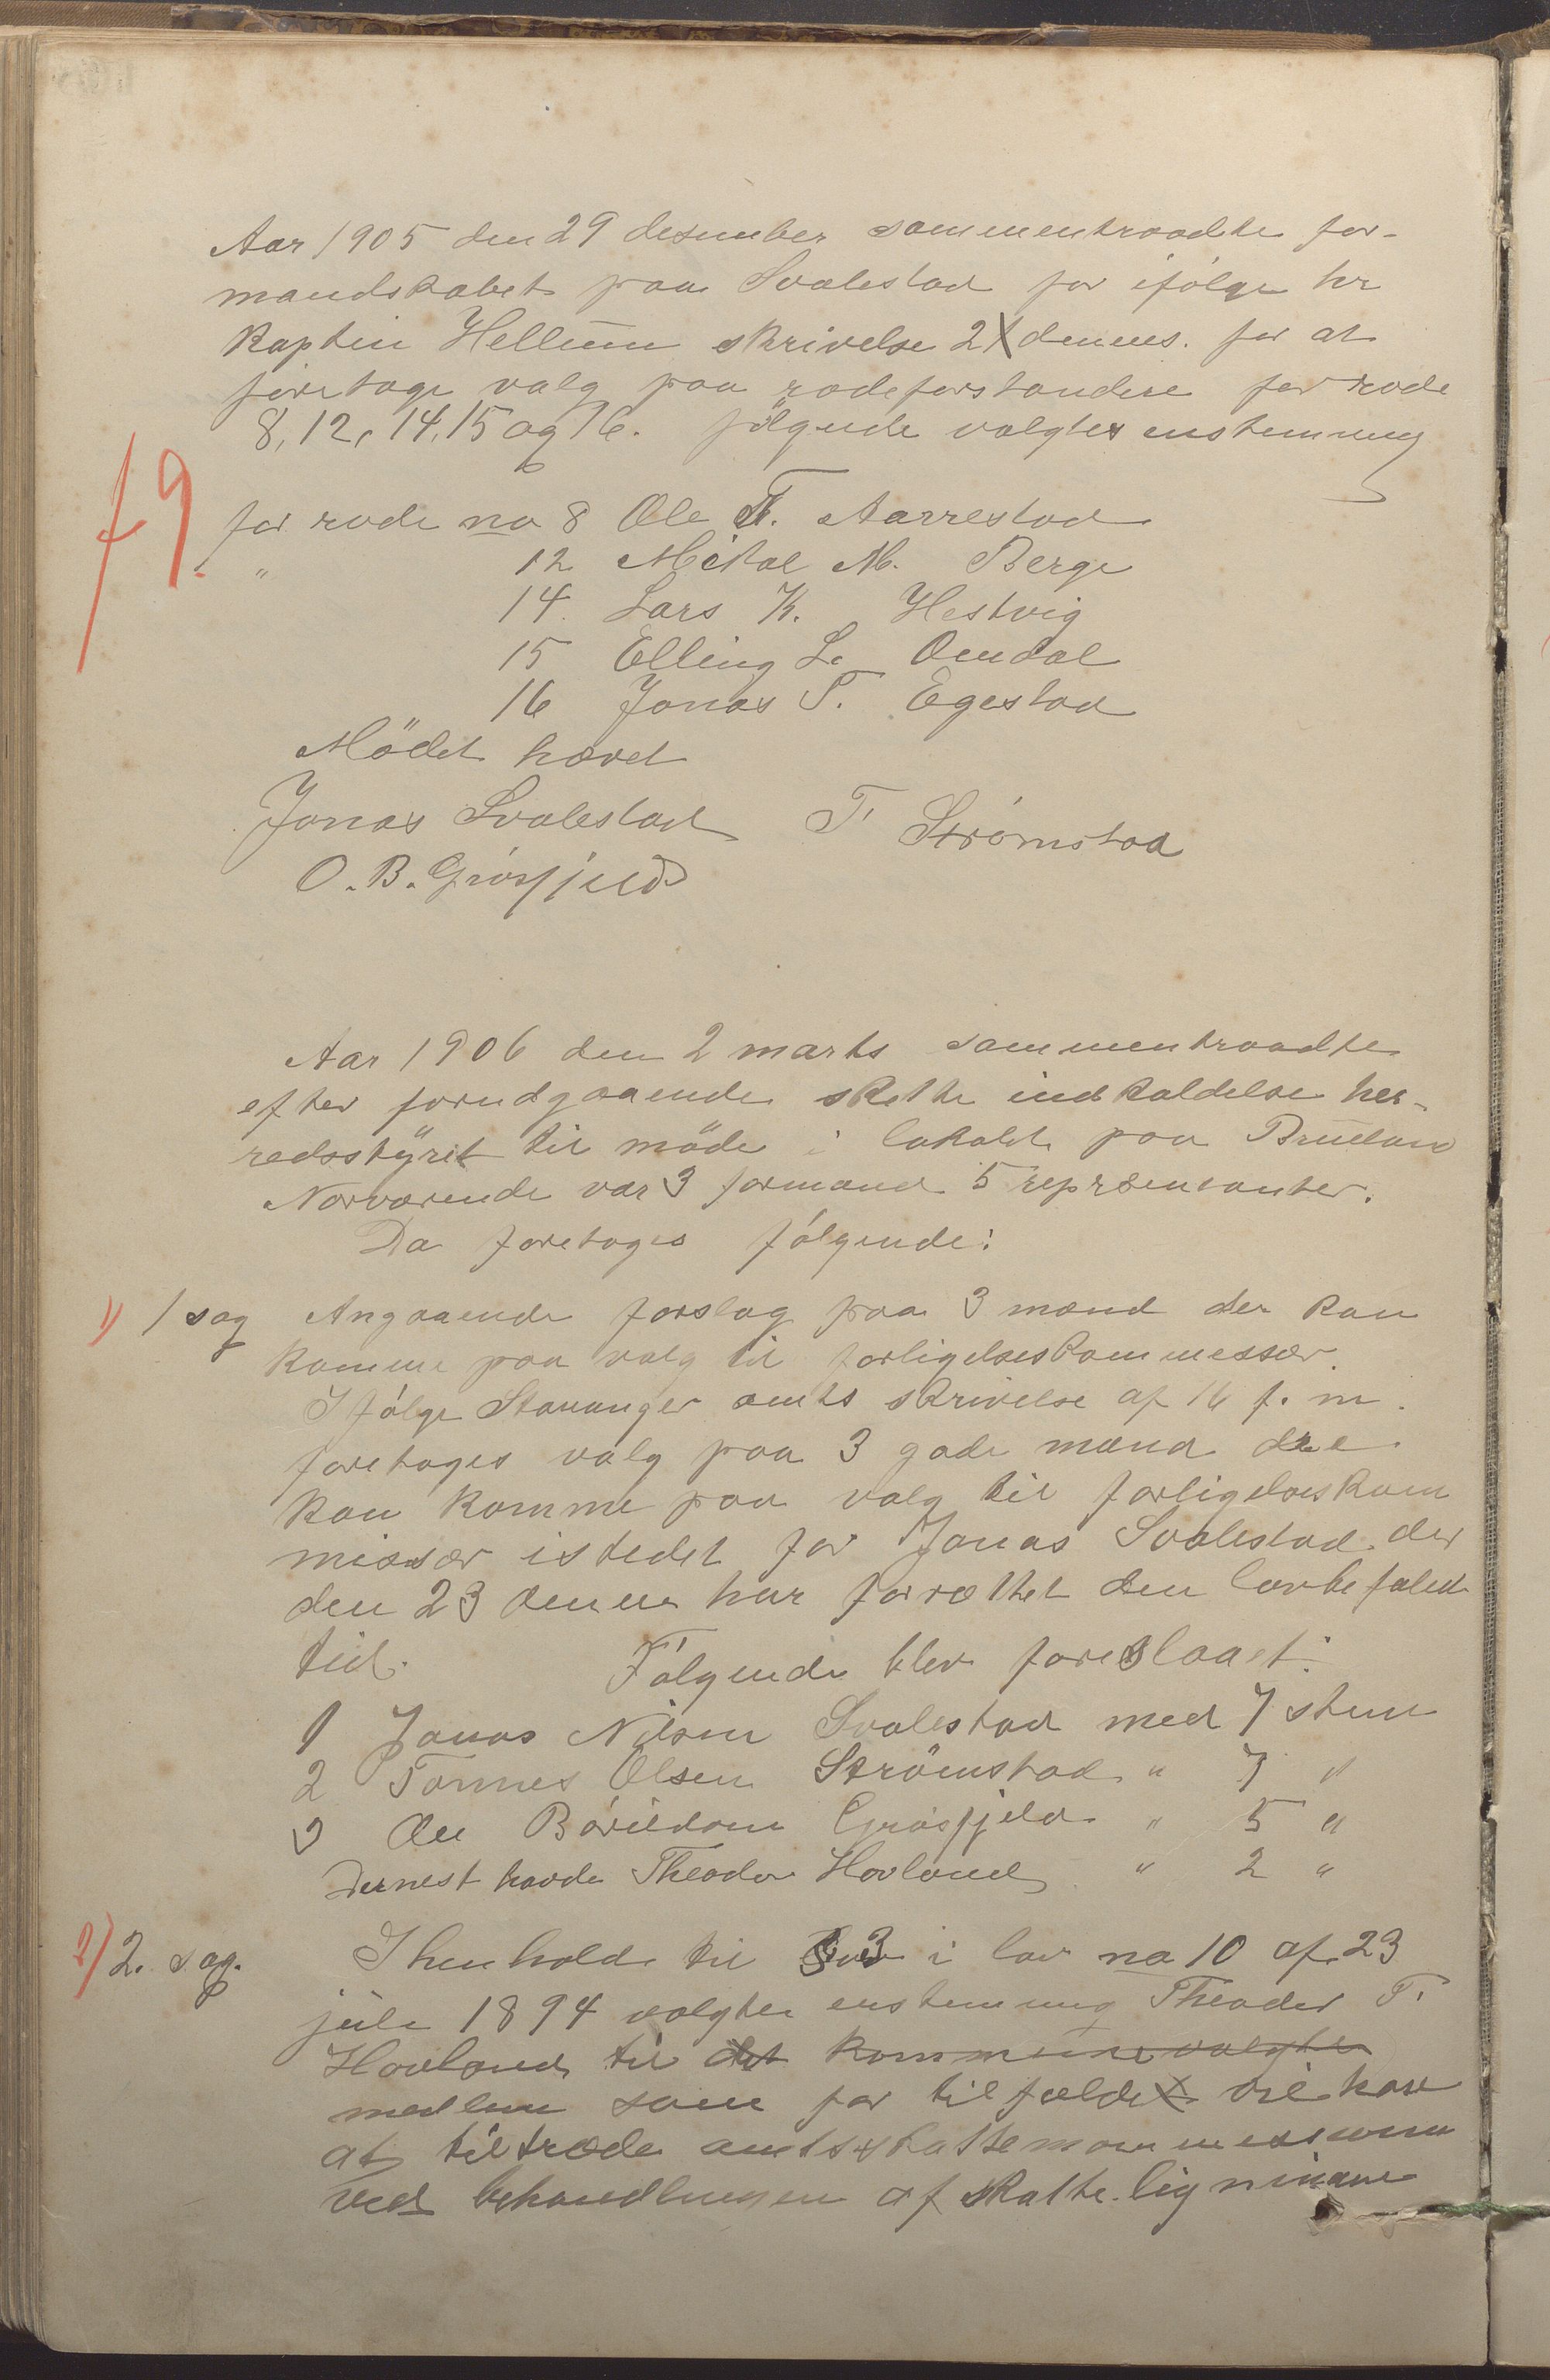 Aar 1905 den 29 desember sammentraadte for-
mandskabet paa Svalestad for ifølge hr
kaptein Hellum skrivelse 21 dennes. for at
foretage valg paa rodeforstandere for rode
8, 12, 14, 15 og 16. følgende valgtes enstemmig
f 9.
for rode no 8 Ole T. Aarrestad
" 12 Mikal M. Berge
14. Lars K. Hestvig
15 Elling L. Omdal
16 Jonas T. Egestad
Mödet hævet
Jonas Svalestad T Strømstad
O. B. Grøsfjeld
Aar 1906 den 2 marts sammentraadte
efter forudgaaende skette indkaldelse her-
redsstyret til möde i lokalet paa Bruland
Nærværende var 3 formænd 5 repræsentanter.
Da foretoges følgende:
1) 1 sag Angaaende forslag paa 3 mænd der kan
komme paa valg til forligelseskommessær.
I følge Stavanger amts skrivelse af 16 f. m.
foretoges valg paa 3 gode mænd der
kan komme paa valg til forligelseskom
missær istedet for Jonas Svalestad der
den 23 dennes har forrettet den lovbefalede
tid. Følgende blev foreslaaet:
1 Jonas Nilsen Svalestad med 7 stem
2 Tønnes Olsen Strömstad " 7 "
3 Ole Bårildsen Grøsfjeld " 5 "
Dernest havde Theodor Hovland " 2 "
2) 2. sag. I henhold til § 3 i lov no 10 af 23
juli 1894 valgtes enstemmig Theodor T.
Hovland til det kommunevalgte
medlem som for tilfælde vil have
at tiltræde amtsskattekommessionen
ved behandlingen af skatteligningane